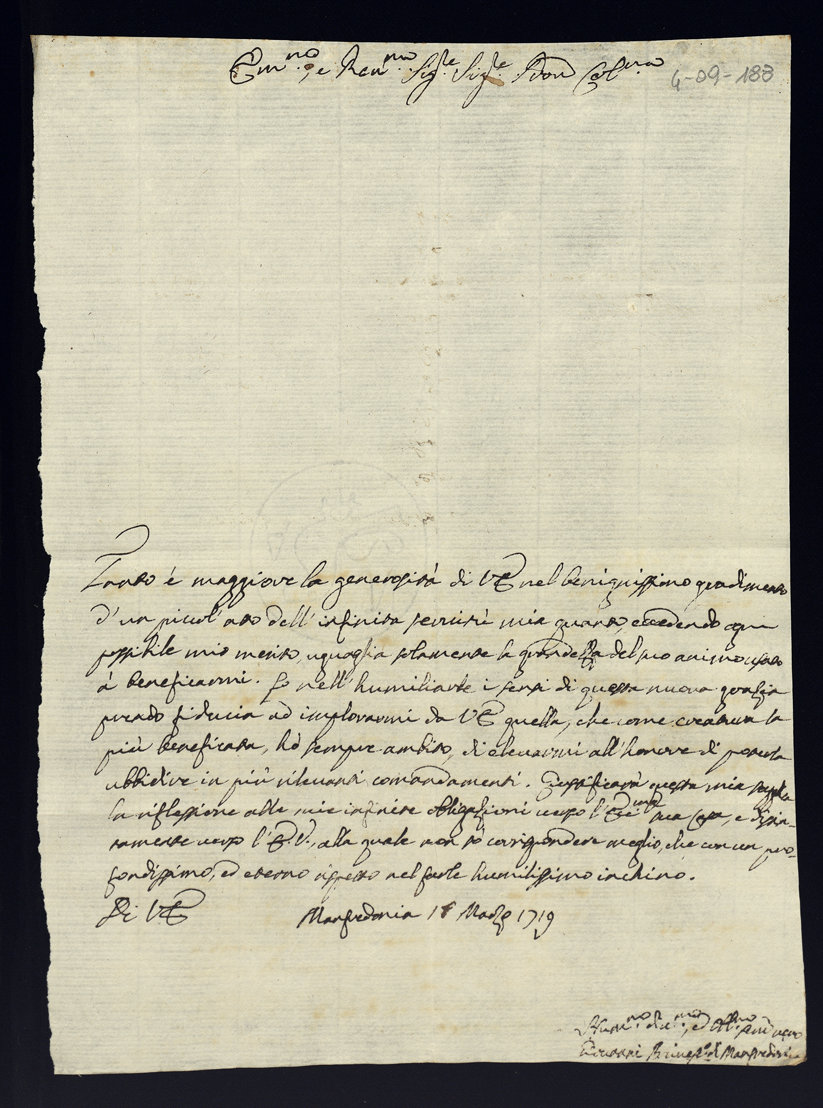 Em.mo, e Rev.mo Sig.re Sig.re Pron Col.mo
4-09-188
Tanto è maggiore la generosità di VE nel benignissimo gradimento
d'un piccol atto dell'infinita servitù mia quanto, eccedendo ogni
possibile mio merito, uguaglia solamente la grandezza del suo animo usato
à beneficarmi. Io nell'humiliarle i sensi di questa nuova grazia
prendo fiducia ad implorarmi da VE quella, che come creatura la
più beneficata, hò sempre ambito, di elevarmi all'honore di poterla
ubbidire in più rilevanti comandamenti. Giustificarà questa mia supplica
la riflessione alle mie infinite obligazioni verso l'Ecc.ma sua Casa, e distin-
tamente verso l'E.V., alla quale non sò corrispondere meglio, che con un pro-
fondissimo, ed eterno rispetto nel farle humilissimo inchino.
Di VE
Manfredonia 18 Marzo 1719
Hum.mo Div.mo, ed Obl.mo Ser.re vero
Giovanni di Manfredonia